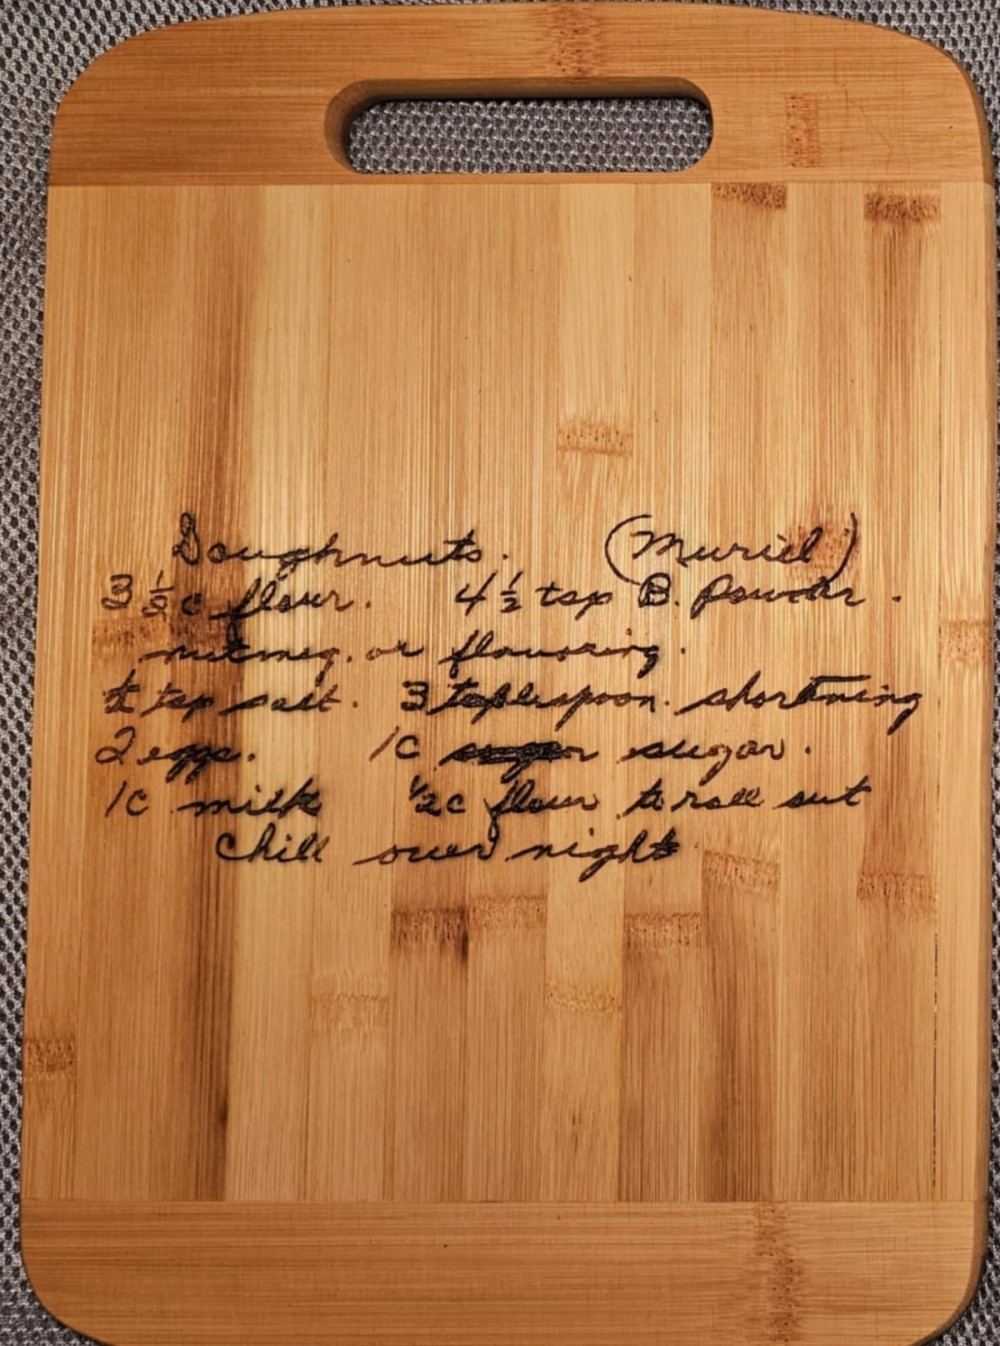 Doughnuts. (Muriel)
3 1/2 c flour. 4 1/2 tsp B. Powder.
nutmeg. or flavoring.
tsp salt. 3 tablespoon. shortning
2 eggs. 1C sugar sugar.
1C milk 1/2 c flour to roll out
Chill over night